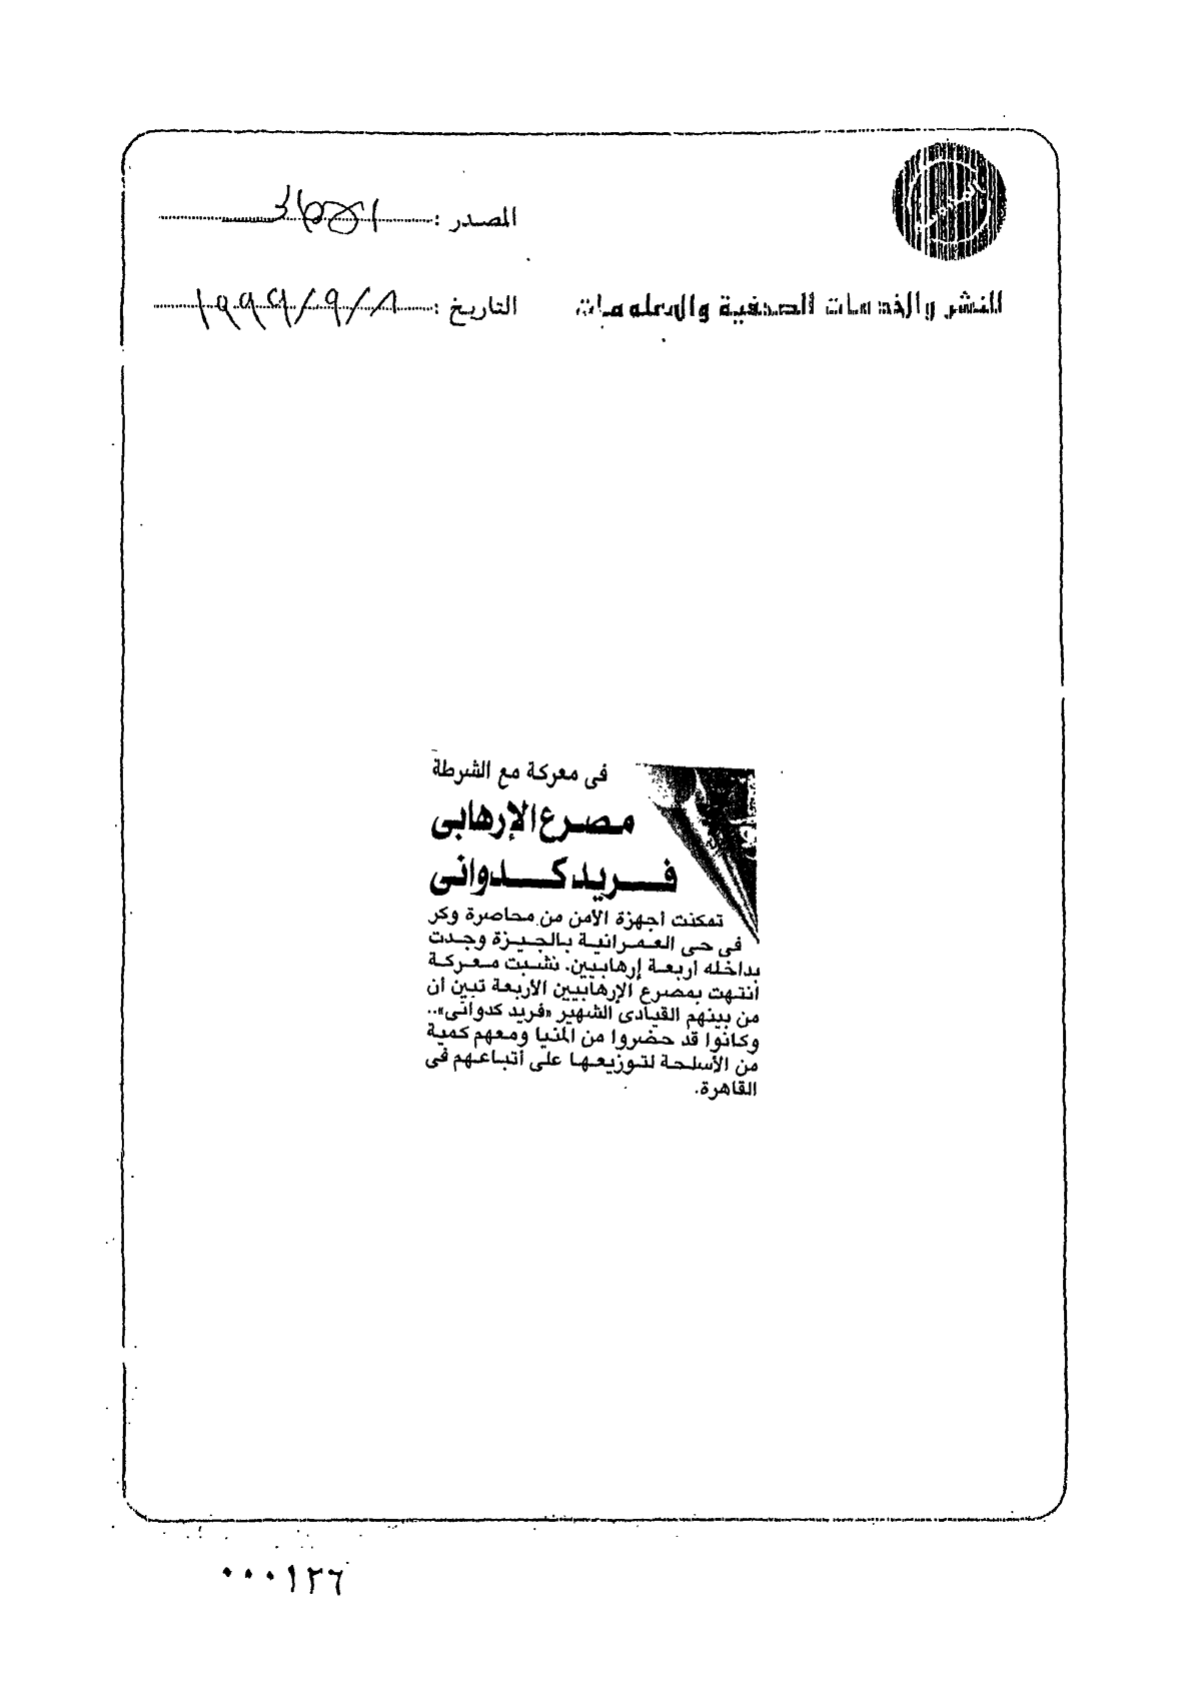 المصدر :
للنشر والخدمات الصحفية والمعلومات
التاريخ : ٨/٩/١٩٩٩
فى معركة مع الشرطة
مصرع الإرهابى
فريد كدوانى
تمكنت أجهزة الأمن من محاصرة وكر
فى حى العمرانية بالجيزة وجدت
بداخله أربعة إرهابيين. نشبت معركة
انتهت بمصرع الإرهابيين الأربعة تبين أن
من بينهم القيادى الشهير «فريد كدوانى»..
وكانوا قد حضروا من المنيا ومعهم كمية
من الأسلحة لتوزيعها على أتباعهم فى
القاهرة.
٠٠٠١٢٦